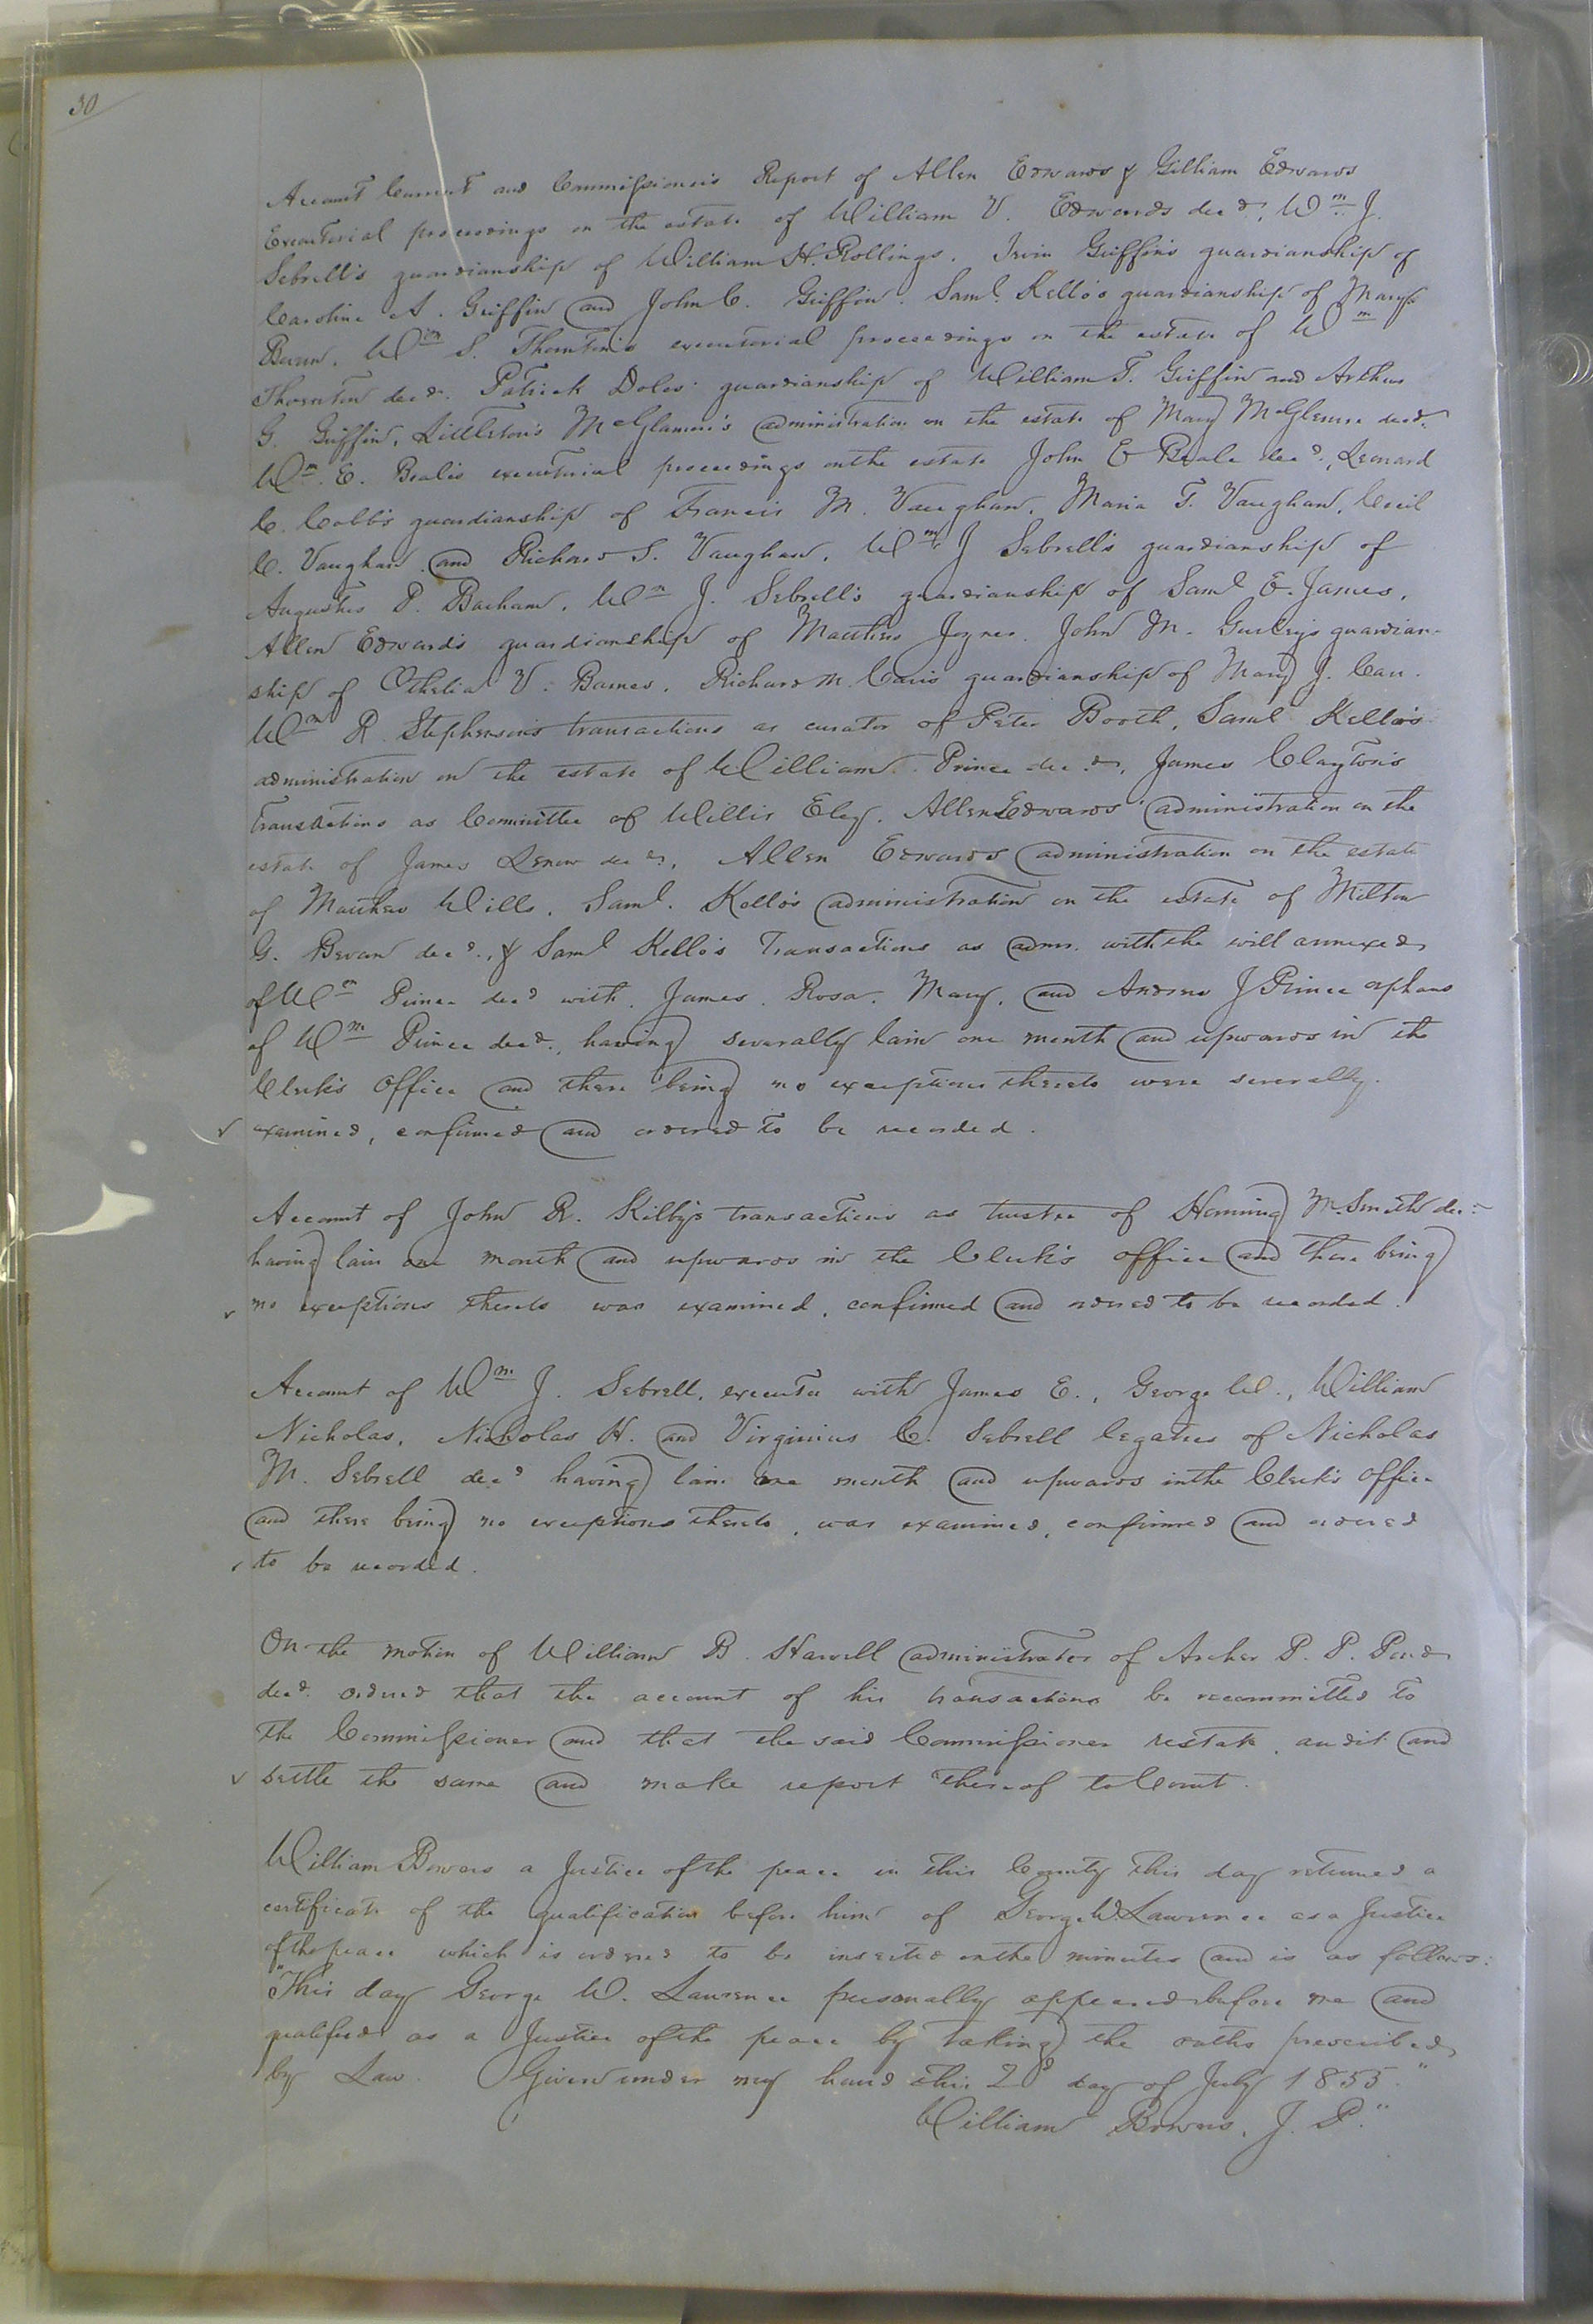 30
Account Current and Commissioner's Report of Allen Edwards & Gilliam Edwards
Executorial proceedings on the estate of William V. Edwards decd, Wm J.
Sebrell's guardianship of William H. Rollings. Irvin Griffin's guardianship of
Caroline A. Griffin and John C. Griffin. Saml. Kello's guardianship of Mary
Wm S. Thornton's executorial proceedings on the estate of Wm
Thornton decd. Patrick Doles' guardianship of William T. Griffin and Arthur
G. Griffin, Littleton's McGlamre's administration on the estate of Mary decd.
Wm. E. Beale's executorial proceedings on the estate John E Beale decd., Leonard
C. Cobb's guardianship of Francis M. Vaughan, Maria T. Vaughan, Cecil
C. Vaughan and Richard S. Vaughan, Wm J Sebrell's guardianship of
Augustus P. Barham, Wm J. Sebrell's guardianship of Saml E. James,
Allen Edwards guardianship of Matthew Joyner. John M. Gurley's guardian-
ship of Othelia V. Barnes. Richard M. guardianship of Mary J.
Wm R. Stephenson's transactions as curator of Peter Booth, Saml Kello's
administration on the estate of William Prince decd, James Clayton's
transactions as Committee of Willis Eley. Allen Edwards' administration on the
estate of James Lenow decd, Allen Edwards administration on the estate
of Matthew Wills. Saml. Kello's administration on the estate of Milton
G. Bevan decd., & Saml Kello's Transactions as admr. with the will annexed
of Wm Prince decd with James. Rosa. Mary. and Andrew J Prince orphans
of Wm Prince decd., having severally lain one month and upwards in the
Clerk's Office and there being no exceptions thereto were severally
✓ examined, confirmed and ordered to be recorded.
Account of John R. Kilby's transactions as trustee of M. Smith dec:
having lain one month and upwards in the Clerk's office and there being
✓ no exceptions thereto was examined, confirmed and ordered to be recorded.
Account of Wm J. Sebrell, executor with James E., George W., William
Nicholas, Nicholas H. and Virginius C. Sebrell legatees of Nicholas
M. Sebrell decd having lain one month and upwards in the Clerk's office
and there being no exceptions thereto, was examined, confirmed and ordered
✓ to be recorded.
On the motion of William B. Harvell administrator of Archer P. P. Pond
decd. ordered that the account of his transactions be recommitted to
the Commissioner and that the said Commissioner restate, audit and
✓ settle the same and make report thereof to Court.
William Bowers a Justice of the peace in this County this day returned a
certificate of the qualification before him of George W. Lawrence as a Justice
of the peace which is ordered to be inserted on the minutes and is as follows:
"This day George W. Lawrence personally appeared before me and
qualified as a Justice of the peace by taking the oaths prescribed
by Law. Given under my hand this 2d day of July 1855."
William Bowers, J. P."